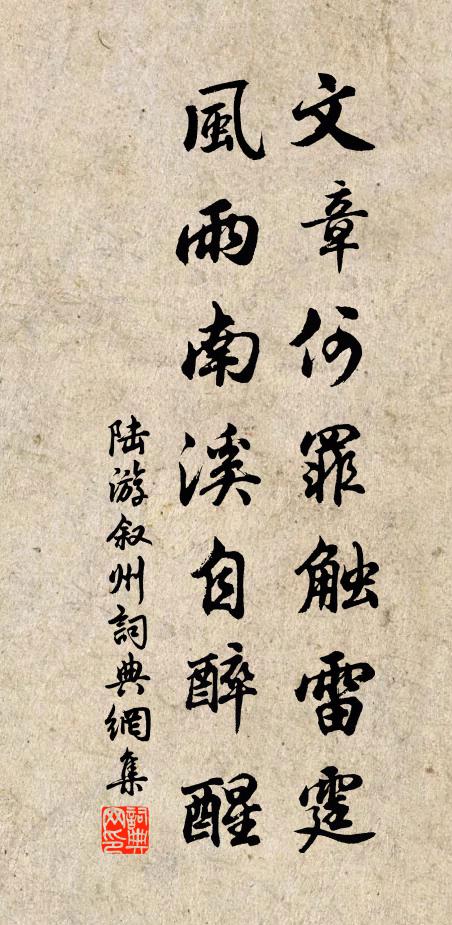 文章何罪触雷霆
風雨南溪自醉醒
陆游叙州詞典網集
詞典网印